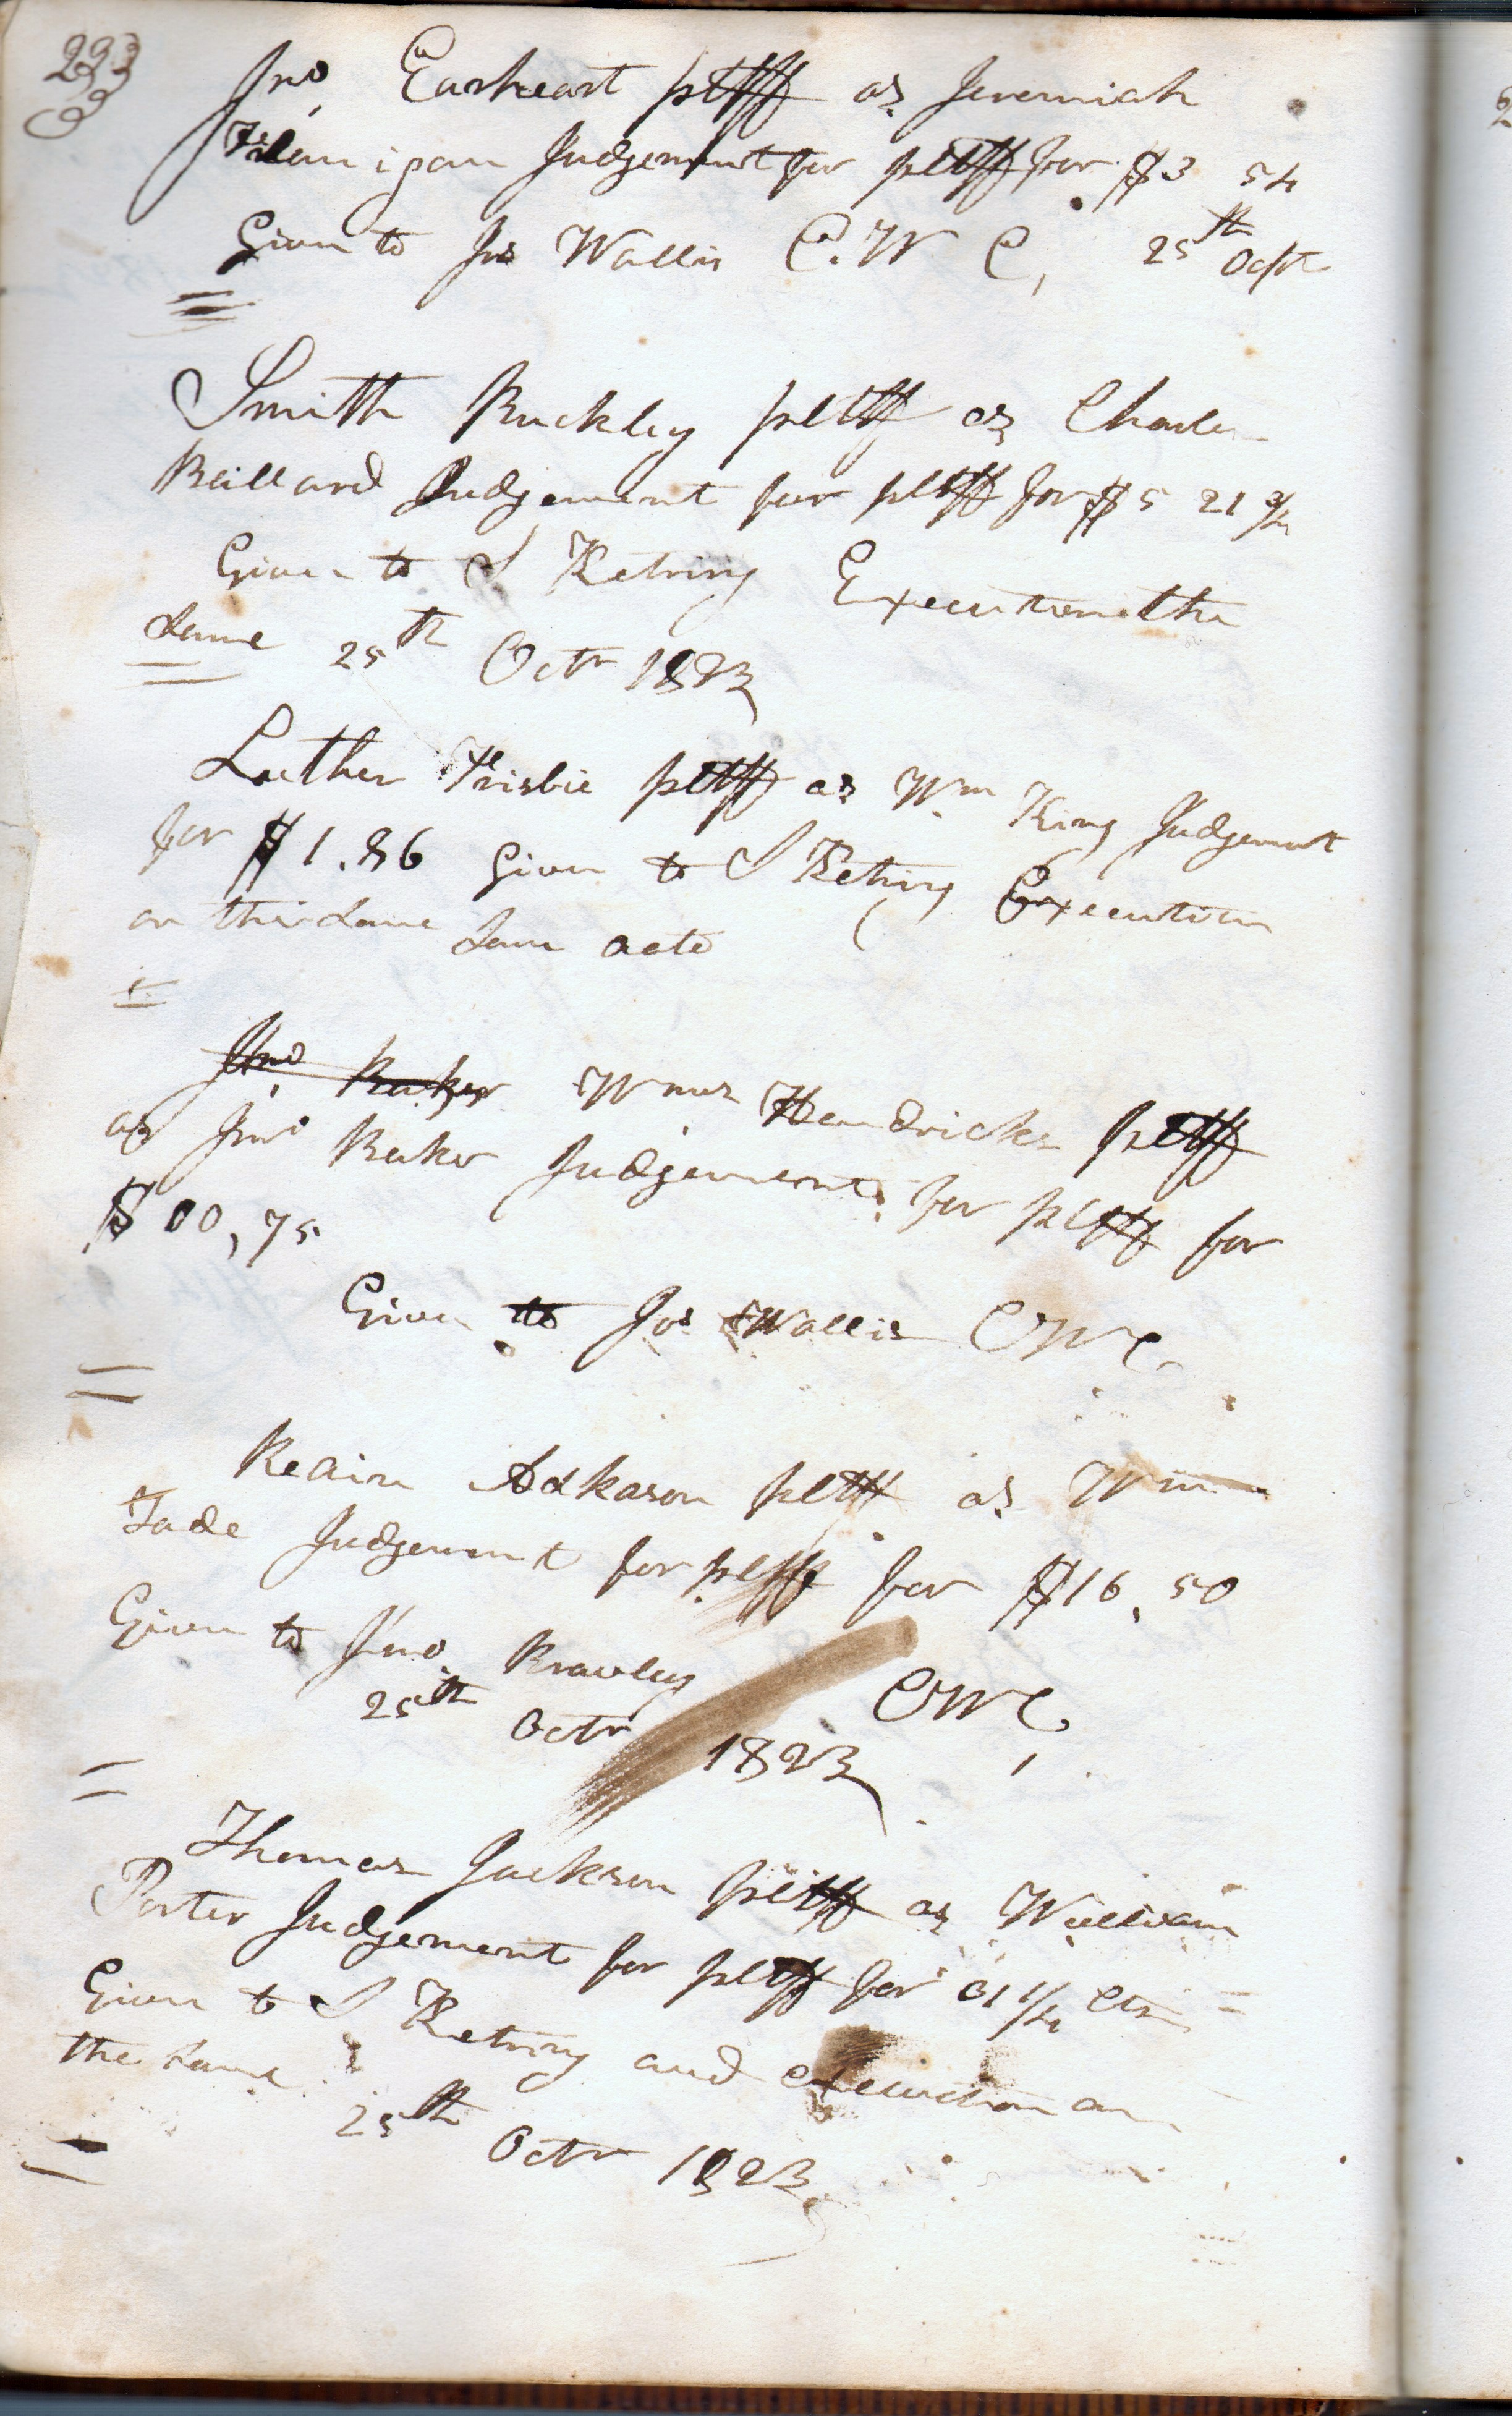 233
Jno. Earheart pltff as Jeremiah
Judgement for pltff for $3 54
Given to Jos Wallis C. W C, 25th Octr
Smith Buckley pltff as Charles
Ballard Judgement for pltff for $5 21 3/4
Given to S Ketring Execution the
same 25th Octr 1823
Luther Frisbie pltff as Wm King Judgement
for $1.86 Given to S Ketring Execution
on the same Same date
Jno. Baker Wm Hendricks pltff
as Jno Baker Judgement for pltff for
$00,75
Given to Jos Wallis CWC
Adkason pltff as Wm
Jade Judgement for pltff for $16,50
Given to Jno. Brawley CWC,
25th Octr 1823
Thomas Jackson pltff as William
Porter Judgement for pltff for 01 1/4 cts =
Given to S Ketring and execution on
the same
25th Octr 1823